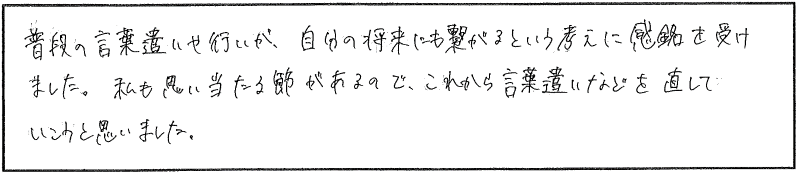 普段の言葉遣いや行いが、自分の将来にも繋がるという考えに感銘を受け
ました。私も思い当たる節があるので、これから言葉遣いなどを直して
いこうと思いました。